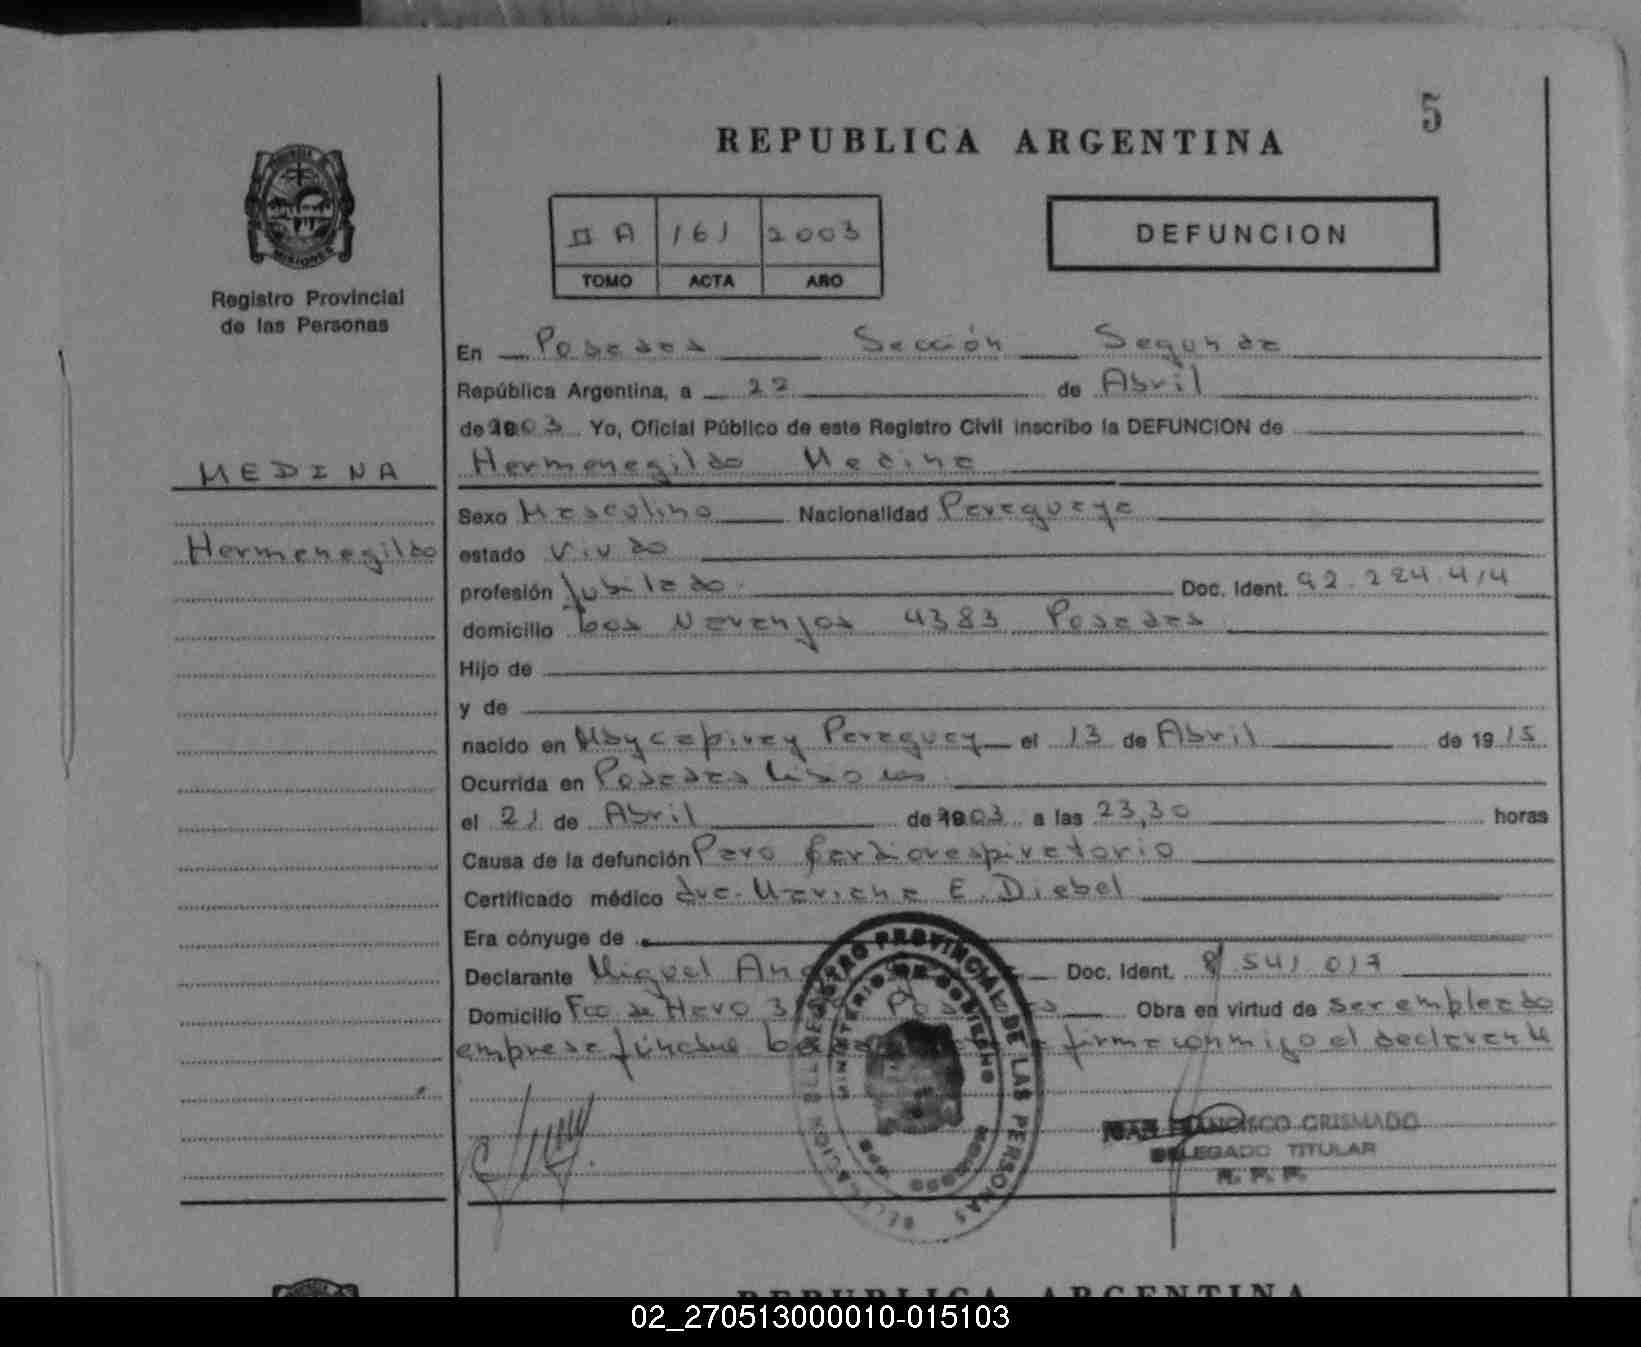 5
REPUBLICA ARGENTINA
II A 161 2003
TOMO ACTA AÑO
DEFUNCION
Registro Provincial
de las Personas
MEDINA
Hermenegildo
En Posadas Sección Segunda
República Argentina, a 22 de Abril
de 2003 Yo, Oficial Público de este Registro Civil inscribo la DEFUNCION de
Hermenegildo Medina
Sexo Masculino Nacionalidad Paraguaya
estado Viudo
profesión Jubilado Doc. Ident. 92.224.414
domicilio Los Naranjos 4383 Posadas
Hijo de
y de
nacido en Mbycapirey Paraguay el 13 de Abril de 1915
Ocurrida en Posadas
el 21 de Abril de 2003 a las 23,30 horas
Causa de la defunción Paro Cardiorespiratorio
Certificado médico dra. Mariana E. Diebel
Era cónyuge de
Declarante Miguel Doc. Ident. 8.541.017
Domicilio Fco de Haro Obra en virtud de ser empleado
empresa firma conmigo el declarante
REGISTRO PROVINCIAL DE LAS PERSONAS
MINISTERIO DE GOBIERNO
JUAN FRANCISCO GRISMADO
DELEGADO TITULAR
R. P. P.
REPUBLICA ARGENTINA
02_270513000010-015103